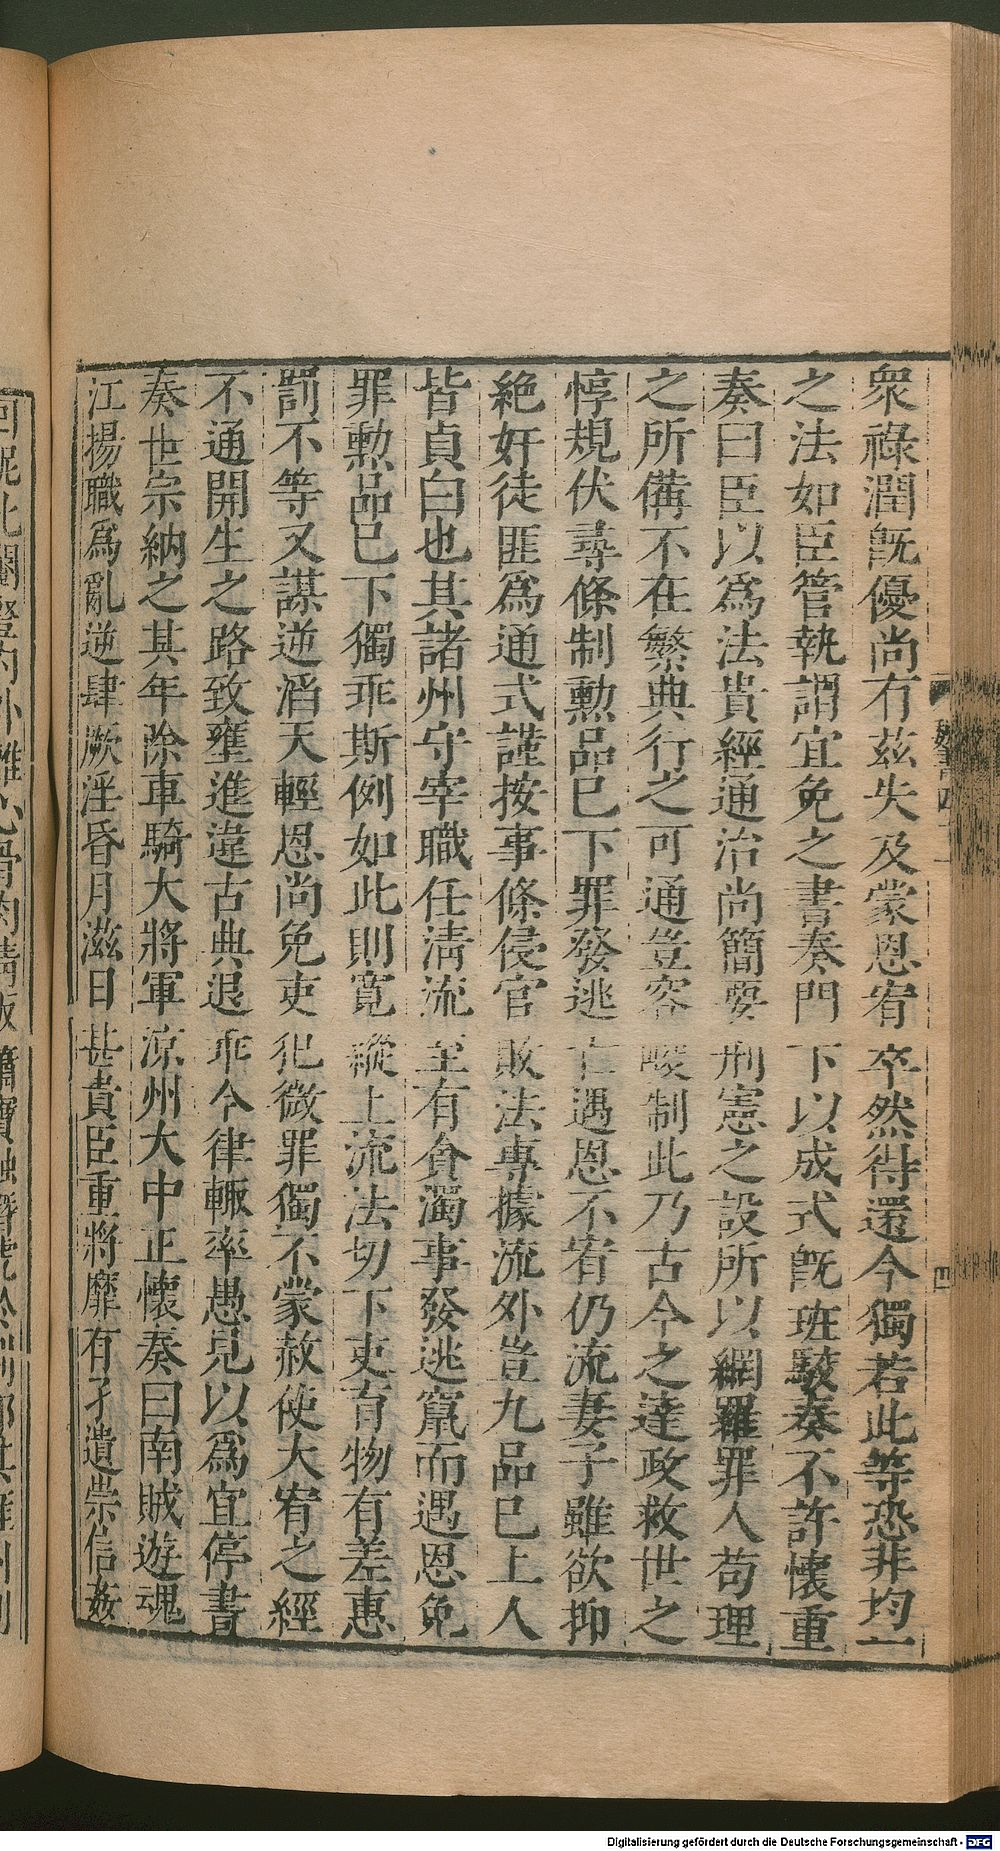 衆祿潤旣優尚有茲失及蒙恩宥卒然得還今獨苦此等恐非均一
之法如臣管執謂宜免之書奏門下以成式旣班駮奏不許懷重
奏曰臣以爲法貴經通治尚簡要刑憲之設所以網羅罪人苟理
之所備不在繁典行之可通豈容峻制此乃古今之達政救世之
惇規伏尋條制勲品已下罪發逃亡遇恩不宥仍流妻子雖欲抑
絶奸徒匪爲通式謹按事條侵官敗法專據流外豈九品已上人
皆貞白也其諸州守宰職任清流至有貪濁事發逃竄而遇恩免
罪勲品已下獨乖斯例如此則寛縱上流法切下吏育物有差惠
罰不等又謀逆滔天輕恩尚免吏犯微罪獨不蒙赦使大宥之經
不通開生之路致壅進違古典退乖今律輙率愚見以爲宜停書
奏世宗納之其年除車騎大將軍涼州大中正懷奏曰南賊遊魂
江揚職爲亂逆肆厥淫昏月滋日甚貴臣重將靡有孑遺崇信姦
魏書四十一
四
Digitalisierung gefördert durch die Deutsche Forschungsgemeinschaft - DFG